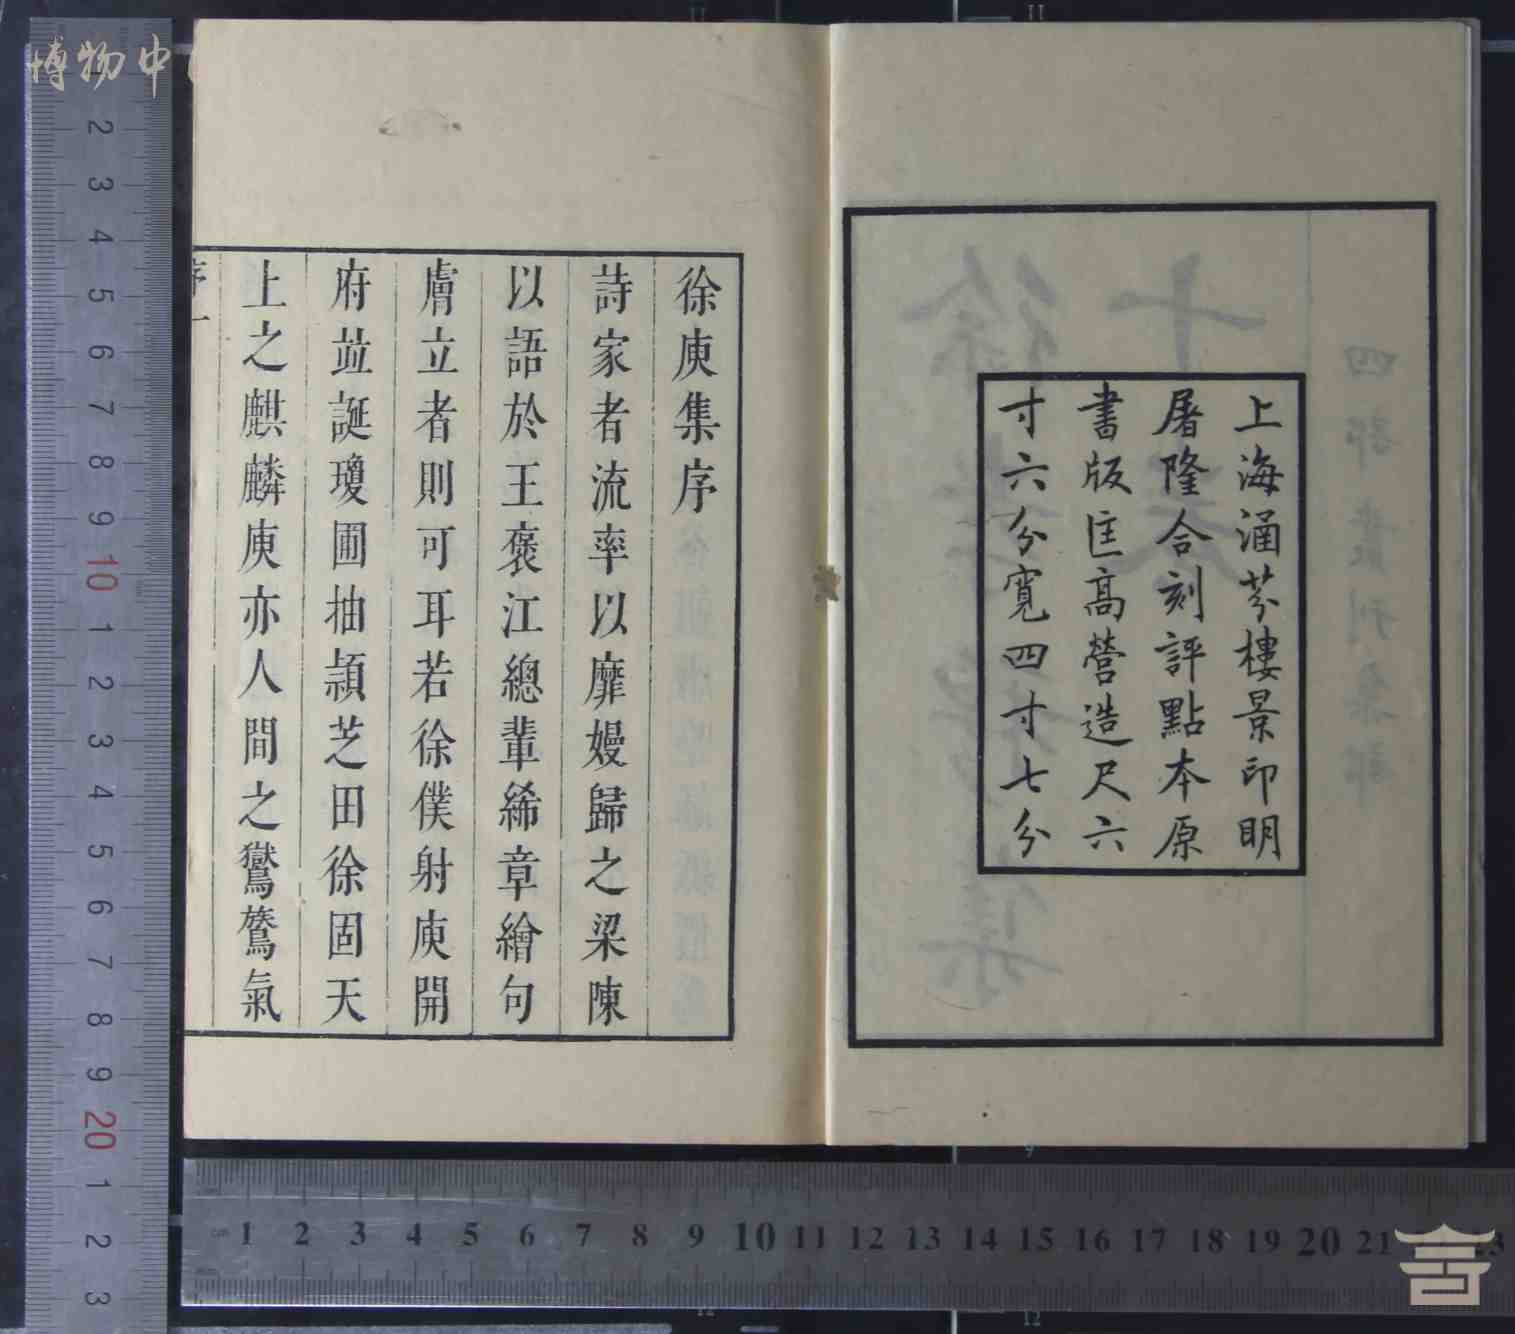 上海涵芬樓景印明
屠隆合刻評點本原
書版匡高營造尺六
寸六分寬四寸七分
徐庾集序
詩家者流率以靡嫚歸之梁陳
以語於王褒江總輩絺章繪句
膚立者則可耳若徐僕射庾開
府並誕瓊圃抽頴芝田徐固天
上之麒麟庾亦人間之鸑鷟氣
序一
四部叢刊集部
博物中
2
3
4
5
6
7
8
9
10
1
2
3
4
5
6
7
8
9
20
1
2
3
1 2 3 4 5 6 7 8 9 10 11 12 13 14 15 16 17 18 19 20 21 23